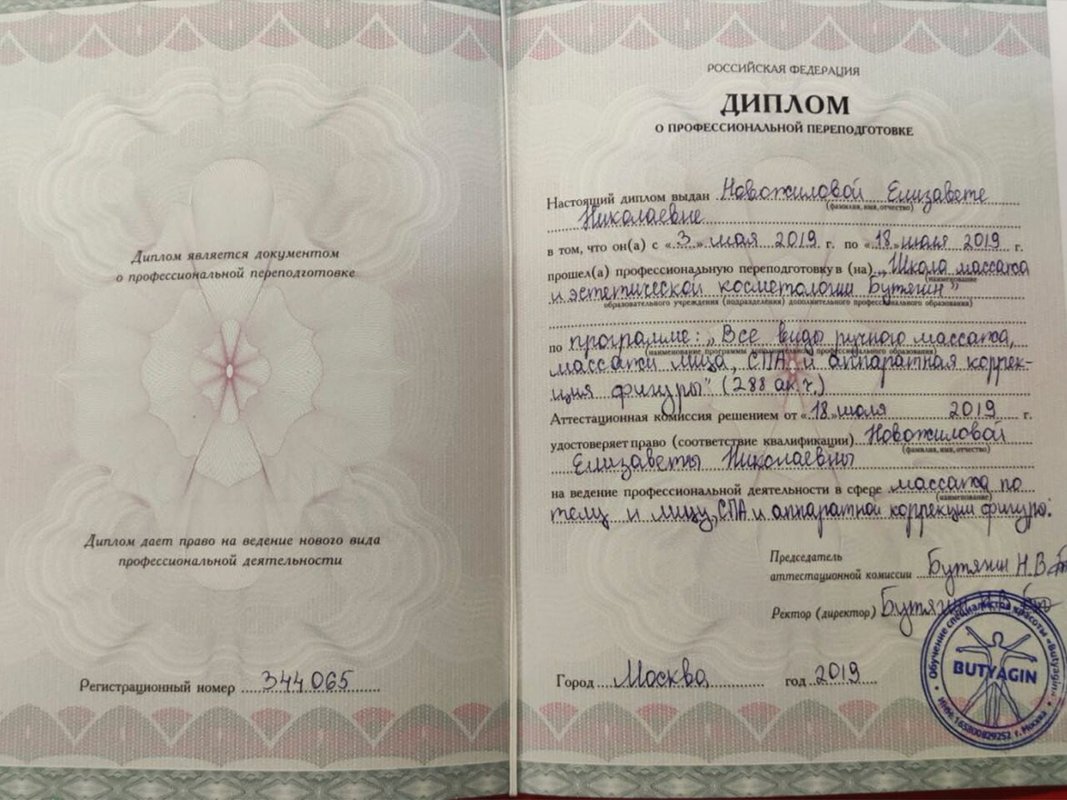 Диплом является документом
о профессиональной переподготовке
Диплом дает право на ведение нового вида
профессиональной деятельности
Регистрационный номер 344065
РОССИЙСКАЯ ФЕДЕРАЦИЯ
ДИПЛОМ
О ПРОФЕССИОНАЛЬНОЙ ПЕРЕПОДГОТОВКЕ
Настоящий диплом выдан Новожиловой Елизавете
(фамилия, имя, отчество)
Николаевне
в том, что он(а) с «3» мая 2019 г. по «18» июля 2019 г.
прошел(а) профессиональную переподготовку в (на) „Школа массажа
(наименование
и эстетической косметологии Бутягин”
образовательного учреждения (подразделения) дополнительного профессионального образования)
по программе: „Все виды ручного массажа,
(наименование программы дополнительного профессионального образования)
массажи лица, СПА и аппаратная коррек-
ция фигуры” (288 ак.ч.)
Аттестационная комиссия решением от «18» июля 2019 г.
удостоверяет право (соответствие квалификации) Новожиловой
(фамилия, имя, отчество)
Елизаветы Николаевны
на ведение профессиональной деятельности в сфере массажа по
(наименование)
телу и лицу, СПА и аппаратной коррекции фигуры.
Председатель
аттестационной комиссии Бутягин Н.В.
Ректор (директор) Бутягин Н.В.
Обучение специалистов красоты «Butyagin»
BUTYAGIN
г. Москва
Город Москва год 2019